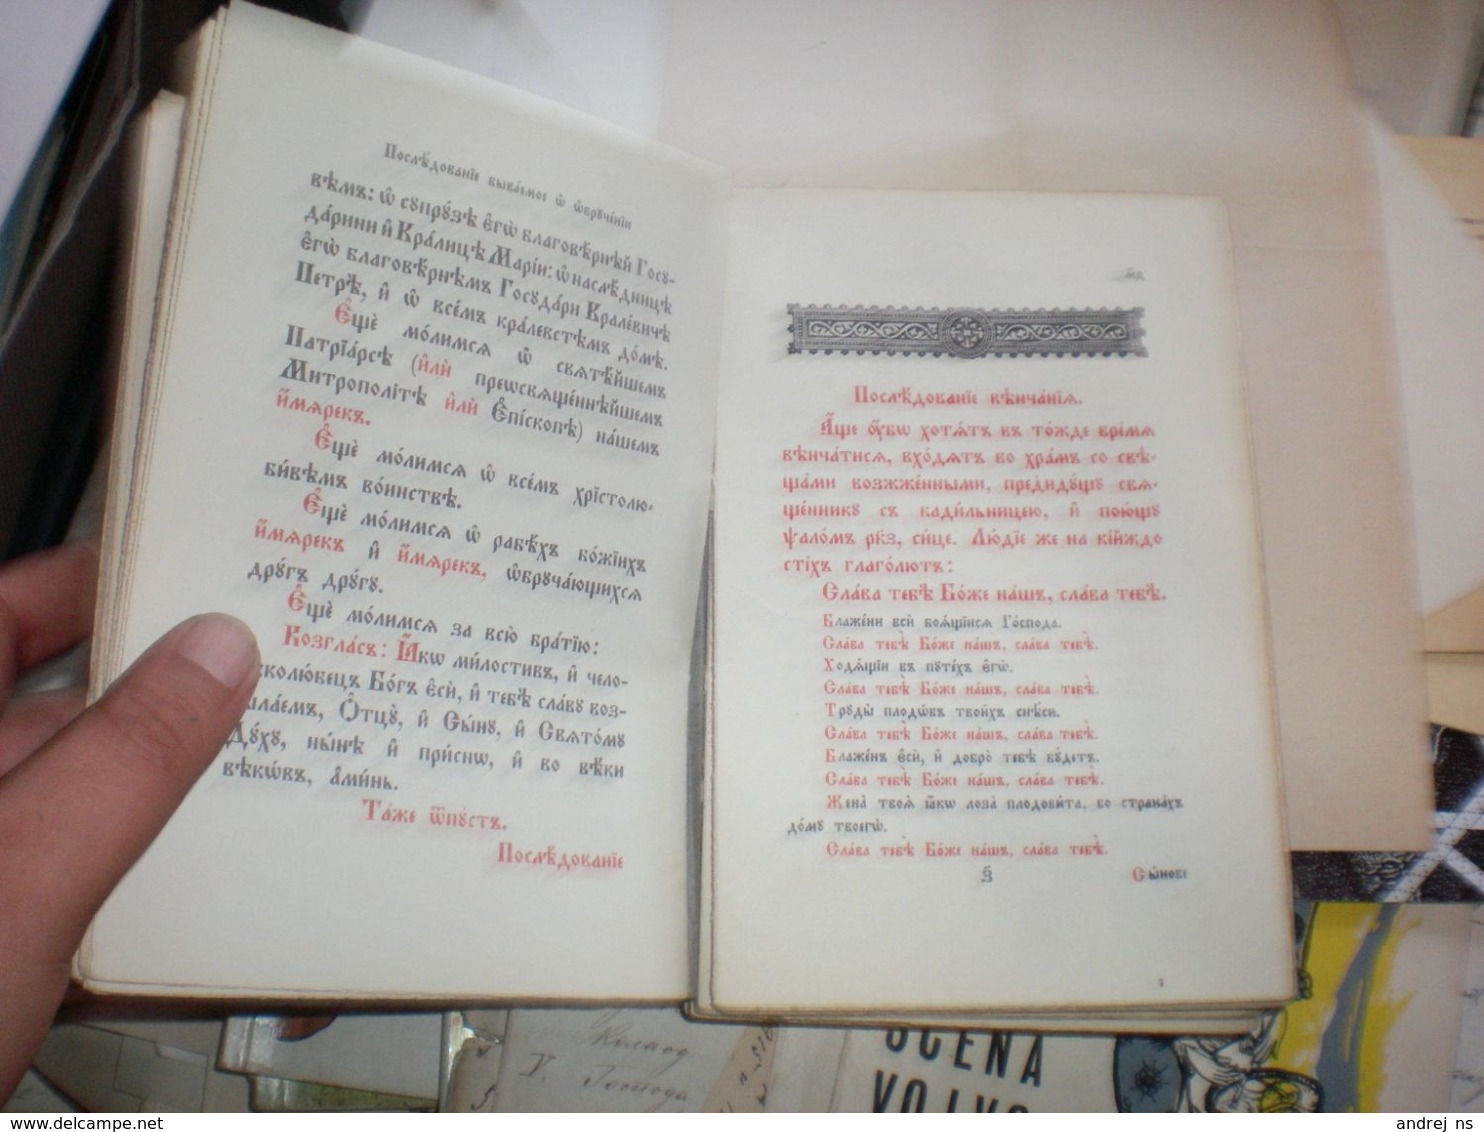 Послѣ́дованїе быва́емое ѿ ѡ҆брꙋче́нїи
вѣмъ: ѡ҆ сꙋпрꙋ́зѣ є҆гѡ̀ благовѣ́рнѣй Госꙋ-
да́рини и҆ Кра́лицѣ Марі́и: ѡ҆ наслѣ́дницѣ
є҆гѡ̀ благовѣ́рнѣмъ Госꙋда́ри Крале́вичѣ
Петрѣ̀, и҆ ѡ҆ все́мъ кра́левстѣмъ до́мѣ.
Е҆щѐ мо́лимсѧ ѡ҆ свѧтѣ́йшемъ
Патрїа́рсѣ (и҆лѝ преѡсвѧще́ннѣйшемъ
Митрополі́тѣ и҆лѝ Е҆пі́скопѣ) на́шемъ
и҆́мѧрекъ.
Е҆щѐ мо́лимсѧ ѡ҆ все́мъ хрїстолю-
би́вѣмъ во́инствѣ.
Е҆щѐ мо́лимсѧ ѡ҆ рабѣ́хъ бо́жїихъ
и҆́мѧрекъ и҆ и҆́мѧрекъ, ѡ҆брꙋча́ющихсѧ
дрꙋ́гъ дрꙋ́гꙋ.
Е҆щѐ мо́лимсѧ за всю̀ бра́тїю:
Возгла́съ: Ꙗ҆́кѡ ми́лостивъ, и҆ чело-
вѣколю́бецъ Бо́гъ є҆сѝ, и҆ тебѣ̀ сла́вꙋ воз-
сыла́емъ, Ѻ҆тцꙋ̀, и҆ Сы́нꙋ, и҆ Свѧто́мꙋ
Дꙋ́хꙋ, ны́нѣ и҆ при́снѡ, и҆ во вѣ́ки
вѣкѡ́въ, а҆ми́нь.
Та́же ѿпꙋ́стъ.
Послѣ́дованїе
Послѣ́дованїе вѣнча́нїѧ.
А҆́ще ᲂу҆́бѡ хотѧ́тъ въ то́жде вре́мѧ
вѣнча́тисѧ, вхо́дѧтъ во хра́мъ со свѣ-
ща́ми возже́нными, предидꙋ́щꙋ свѧ-
ще́нникꙋ съ кади́льницею, и҆ пою́щꙋ
ѱало́мъ рк҃з, си́це. Лю́дїе же на кі́йждо
сті́хъ глаго́лютъ:
Сла́ва тебѣ̀ Бо́же на́шъ, сла́ва тебѣ̀.
Блаже́ни всѝ боѧ́щїисѧ Го́спода.
Сла́ва тебѣ̀ Бо́же на́шъ, сла́ва тебѣ̀.
Ходѧ́щїи въ пꙋте́хъ є҆гѡ̀.
Сла́ва тебѣ̀ Бо́же на́шъ, сла́ва тебѣ̀.
Трꙋды̀ плодѡ́въ твои́хъ снѣ́си.
Сла́ва тебѣ̀ Бо́же на́шъ, сла́ва тебѣ̀.
Блаже́нъ є҆сѝ, и҆ добро̀ тебѣ̀ бꙋ́детъ.
Сла́ва тебѣ̀ Бо́же на́шъ, сла́ва тебѣ̀.
Жена̀ твоѧ̀ ꙗ҆́кѡ лоза̀ плодови́та, во страна́хъ
до́мꙋ твоегѡ̀.
Сла́ва тебѣ̀ Бо́же на́шъ, сла́ва тебѣ̀.
з҃
Сы́нове
Господа
SCENA
andrej ns